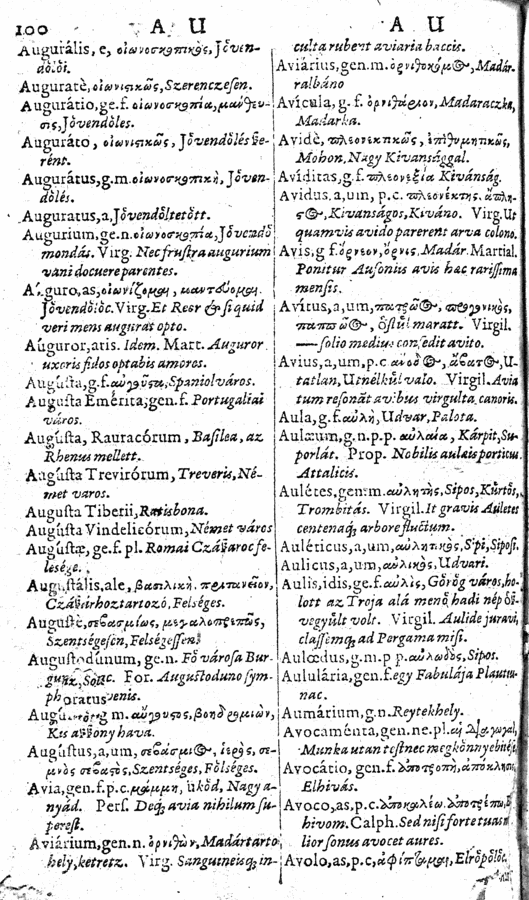 100 A U
Augurális, e, οἰωνοσκοπικὸς, Jőven-
dőlői.
Auguratè, οἰωνιστικῶς, Szerenczesen.
Augurátio, ge.f. οἰωνοσκοπία, μάντευ-
σις, Jővendőles.
Auguráto, οἰωνιστικῶς, Jővendőlés ße-
rént.
Augurátus, g.m. οἰωνοσκοπικὴ, Jőven-
dőlés.
Auguratus, a, Jővendőltetőtt.
Augurium, ge.n. οἰωνοσκοπία, Jővendő
mondás. Virg. Nec frustra augurium
vani docuere parentes.
Auguro, as, οἰωνίζομαι, μαντεύομαι.
Jővendőlőc. Virg. Et Resr & si quid
veri mens augurat opto.
Auguror, aris. Idem. Mart. Auguror
uxoris fidos optabis amores.
Augústa, g.f. αὐγοῦστα, Spaniol város.
Augusta Emérita; gen.f. Portugaliai
város.
Augústa, Rauracórum, Basilea, az
Rhenus mellett.
Augústa Trevirórum, Treveris, Né-
met varos.
Augusta Tiberii, Ratisbona.
Augústa Vindelicórum, Német város
Augústæ, ge.f. pl. Romai Czáßaroc fe-
lesége.
Augustális, ale, βασιλικὴ. πρυτανεῖον,
Czáßárhoz tartozó, Felséges.
Augustè, σεβασμίως, μεγαλοπρεπῶς,
Szentségesen, Felségessen.
Augustodúnum, ge.n. Fő városa Bur-
For. Augustoduno sym-
phoratus venis.
g m. αὔγουστος, βοηδρομιών,
Kis aßßony hava.
Augústus, a, um, σεβάσμιος, ἱερὸς, σε-
μνὸς σεβαστὸς, Szentséges, Főlséges.
Avia, gen.f.p.c. μάμμη, ükőd, Nagy a-
nyád. Pers. Deq; avia nihilum su-
perest.
Aviárium, gen.n. ὀρνιθὼν, Madártarto
hely, ketretz. Virg. Sanguineisq; in-
A U
culta rubent aviaria baccis.
Aviárius, gen.m. ὀρνιθοκόμος, Madár-
ralbáno
Avícula, g.f. ὀρνιθάριον, Madaraczka,
Madarka.
Avidè, πλεονεκτικῶς, ἐπιθυμητικῶς,
Mohon, Nagy Kivansággal.
Avíditas, g.f. πλεονεξία Kivánság.
Avidus, a, um, p.c. πλεονέκτης. ἄπλη-
στος, Kivánságos, Kiváno. Virg. Ut
quamvis avido parerent arva colono.
Avis, g f. ὄρνεον, ὄρνις. Madár. Martial.
Ponitur Ausoniis avis hæc rarissima
mensis.
Avítus, a, um, πατρῷος, προγονικὸς,
παππῷος, őstűl maratt. Virgil.
— solio medius consedit avito.
Avius, a, um, p.c ἄνοδος, ἄβατος, U-
tatlan, Utnélkűl valo. Virgil. Avia
tum resonãt avibus virgulta canoris.
Aula, g.f. αὐλὴ, Udvar, Palota.
Aulæum, g.n.p.p. αὐλαία, Kárpit, Su-
porlát. Prop. Nobilis aulæis porticus
Attalicis.
Aulétes, gen.m. αὐλητὴς, Sipos, Kűrtős,
Trombitás. Virgil. It gravis Auletes
centenaq; arbore fluctum.
Auléticus, a, um, αὐλητικὸς, Sípi, Siposi.
Aulicus, a, um, αὐλικὸς, Udvari.
Aulis, idis, ge.f. αὐλὶς, Gőrőg város, ho-
lott az Troja alá menő hadi nép őß-
vegyűlt volt. Virgil. Aulide juravi,
classemq; ad Pergama misi.
Aulœdus, g.m.p p. αὐλωδὸς, Sipos.
Aululária, gen.f. egy Fabulája Plautus-
nac.
Aumárium, g.n. Reytekhely.
Avocaménta, gen.ne.pl. αἱ διαγωγαὶ,
Munka utan testnec megkőnnyebbűlése
Avocátio, gen.f. ἀποτροπὴ, ἀπόκλησις,
Elhivás.
Avoco, as, p.c. ἀποκαλέω. ἀποτρέπω, El
hivom. Calph. Sed nisi forte tuas me-
lior sonus avocet aures.
Avolo, as, p.c, ἀφίπταμαι, Elrőpőlőc.